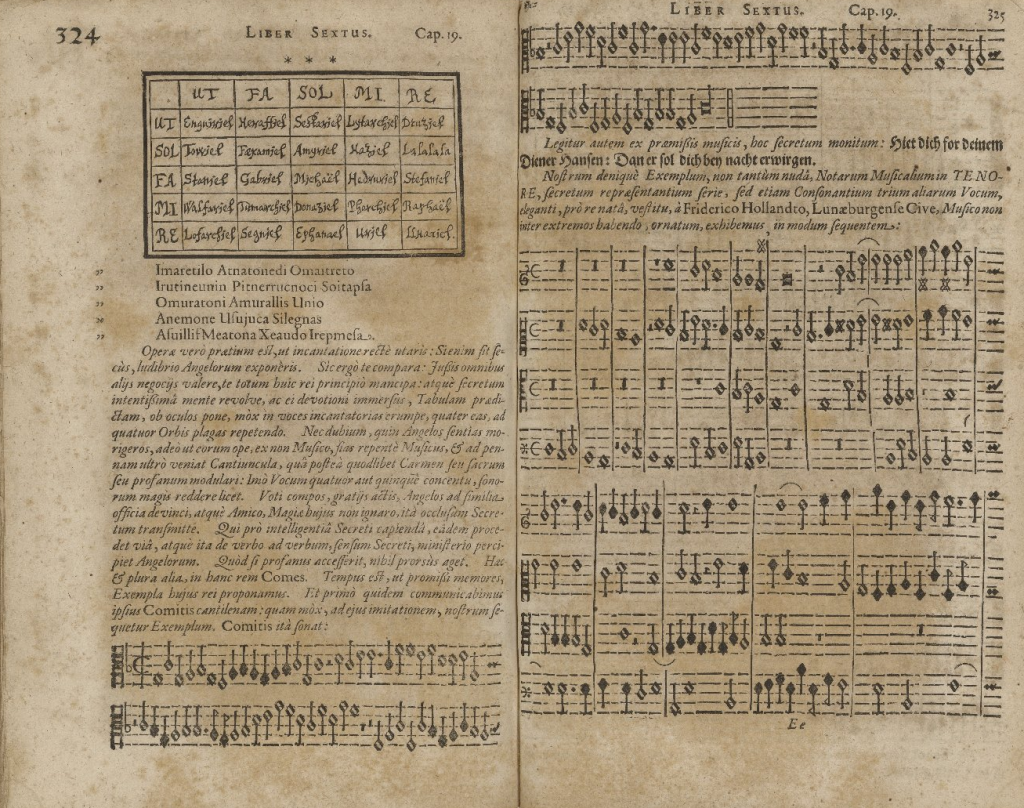 324
LIBER SEXTUS. Cap. 19.
* * *
UT FA SOL MI RE
UT
SOL Amgviel Laꝉalala
FA Gabriel Michaël Stefaniel
MI Raphaël
RE Segniel Uriel
Imaretilo Atnatonedi Omaitreto
Irutineunin Pitnerrucnoci Soitapsa
Omuratoni Amurallis Unio
Anemone Usujuca Silegnas
Asuillis Meatona Xeaudo Irepmesa.
Operæ verò prætium est, ut incantatione rectè utaris: Si enim sit se-
cùs, ludibrio Angelorum exponêris. Sic ergò te compara: Jussis omnibus
alijs negocijs valere, te totum huic rei principiò mancipa: atque secretum
intentissimâ mente revolve, ac ei devotioni immersus, Tabulam prædi-
ctam, ob oculos pone, mòx in voces incantatorias erumpe, quater eas, ad
quatuor Orbis plagas repetendo. Nec dubium, quin Angelos sentias mo-
rigeros, adeò ut eorum ope, ex non Musico, fias repentè Musicus, & ad pen-
nam ultrò veniat Cantiuncula, quâ posteà quodlibet Carmen seu sacrum
seu profanum modulari: Imò Vocum quatuor aut quinque concentu, sono-
rum magis reddere licet. Voti compos, gratijs actis, Angelos ad similia
officia devinci, atque Amico, Magiæ hujus non ignaro, ità occlusum Secre-
tum transmitte. Qui prò intelligentiâ Secreti capiendâ, eâdem proce-
det viâ, atque ita de verbo ad verbum, sensum Secreti, ministerio perci-
piet Angelorum. Quòd si profanus accesserit, nihil prorsùs aget. Hæc
& plura alia, in hanc rem Comes. Tempus est, ut promissi memores,
Exempla hujus rei proponamus. Et primò quidem communicabimus
ipsius Comitis cantilenam: quam mòx, ad ejus imitationem, nostrum se-
quetur Exemplum. Comitis ità sonat:
LIBER SEXTUS. Cap. 19. 325
Legitur autem ex præmissis musicis, hoc secretum monitum: Hiet dich for deinem
Diener Hansen: Dan er sol dich bey nacht erwirgen.
Nostrum denique Exemplum, non tantùm nudâ, Notarum Musicalium in TENO-
RE, secretum repræsentantium serie, sed etiam Consonantium trium aliarum Vocum,
eleganti, prò re natâ, vestitu, à Friderico Hollandto, Lunæburgense Cive, Musico non
inter extremos habendo, ornatum, exhibemus, in modum sequentem:
Ee